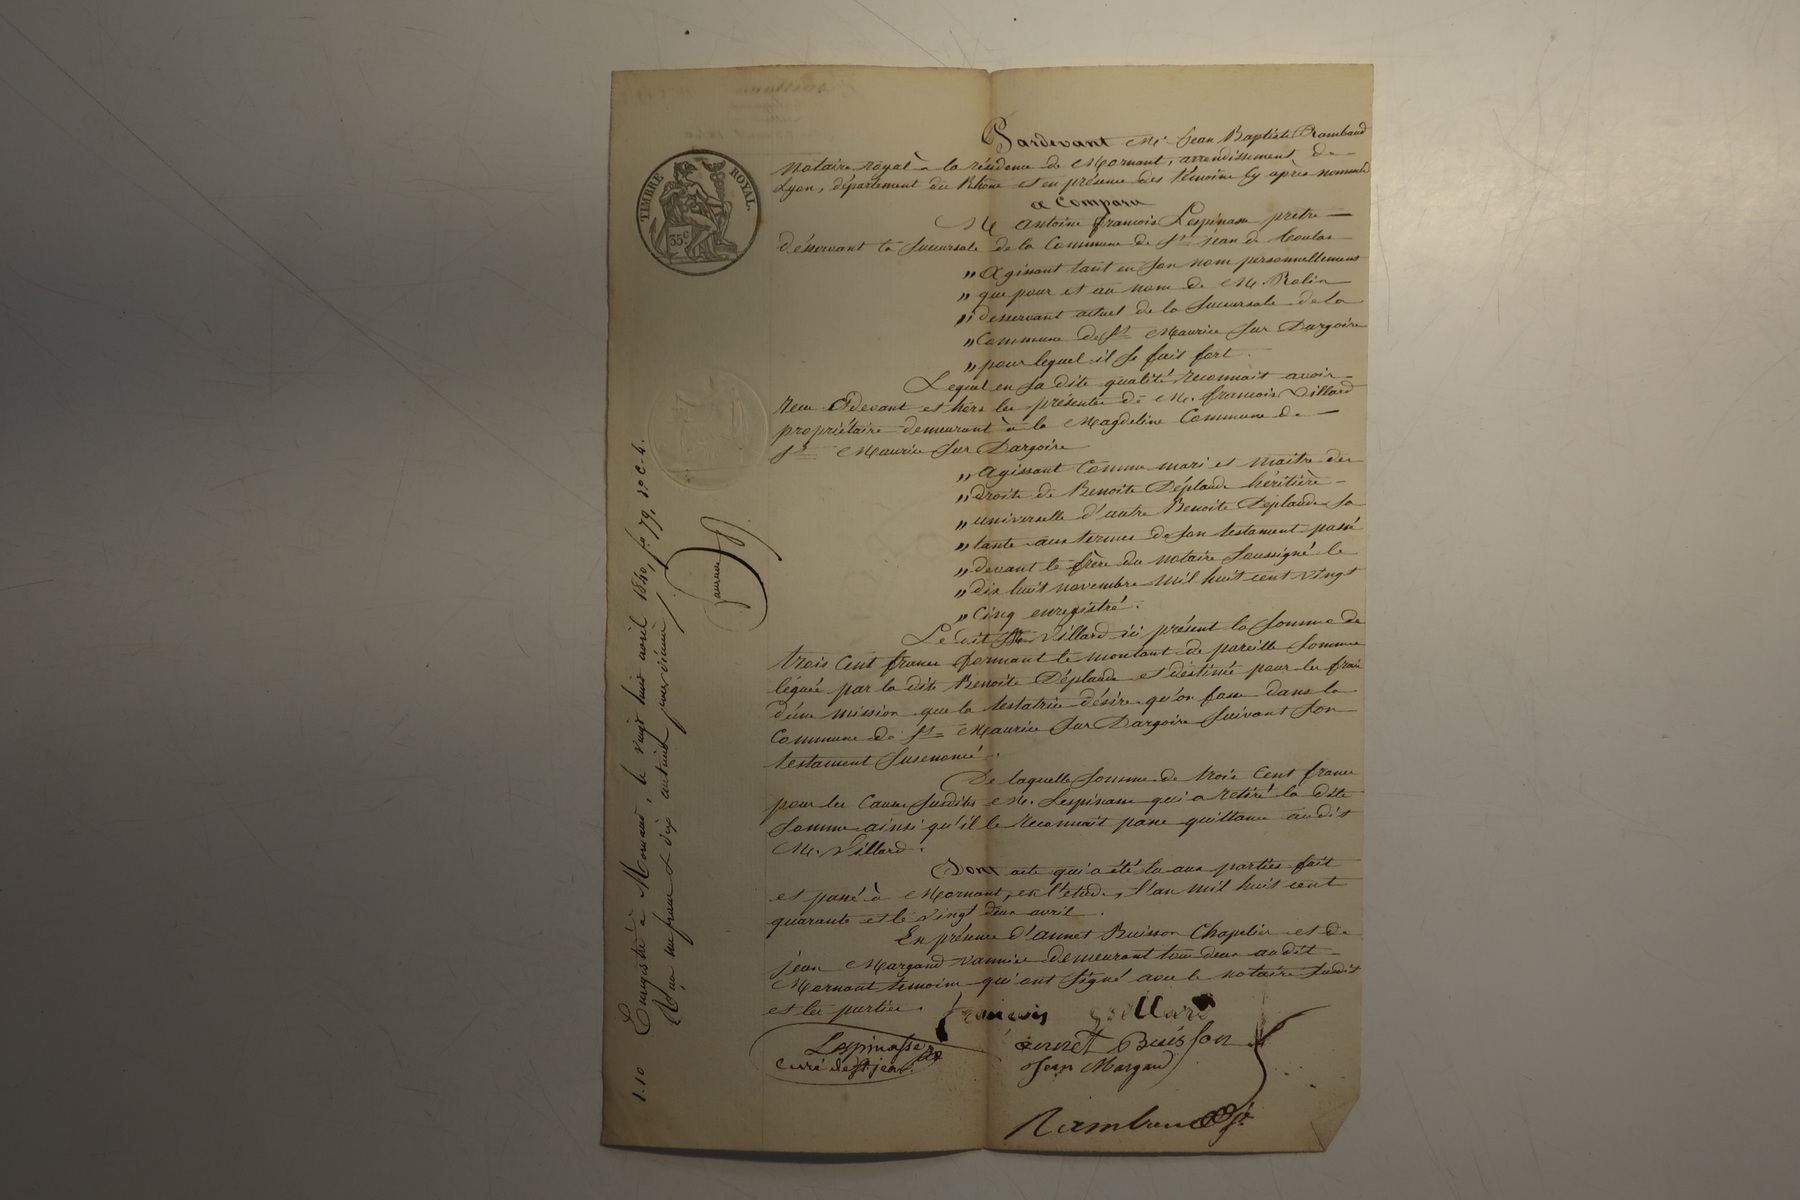 Pardevant Me Jean Baptiste Rambaud
notaire royal à la résidence de Mornant, arrondissement de
Lyon, département du Rhône et en présence des témoins cy après nommés
a Comparu
M Antoine francois Lespinasse pretre
désservant la Sucursale de la Commune de St jean de Toulas
" Agissant tant en son nom personnellement
" que pour et au nom de M. Rolin
" desservant actuel de la Sucursale de la
" Commune de St Maurice Sur Dargoire
" pour lequel il se fait fort.
Lequel en sa dite qualité reconnait avoir
recu Cidevant et hors les présentes de M. francois Villard
propriétaire demeurant à la Magdeline Commune de
St Maurice Sur Dargoire
" Agissant Comme mari et maitre des
" droits de Benoite Déplaude héritière
" universelle d'autre Benoite Déplaude sa
" tante aux termes de son testament passé
" devant le frère du notaire Soussigné le
" dix huit novembre mil huit cent vingt
" Cinq enregistré.
Le dit Villard ici présent la Somme de
trois Cent francs formant le montant de pareille Somme
léguée par la dite Benoite Déplaude et destinée pour les frais
d'une mission que la testatrice désire qu'on fasse dans la
Commune de St Maurice Sur Dargoire Suivant Son
testament Susenoncé.
De laquelle Somme de trois Cent francs
pour les Causes Susdites M. Lespinasse qui a retiré la dite
Somme ainsi qu'il le reconnait passe quittance audit
M. Villard.
Dont acte qui a été lu aux parties fait
et passé à Mornant, en l'étude, l'an mil huit cent
quarante et le vingt deux avril.
En présence d'annet Buisson Chapelier et de
jean Margaud vannier demeurant tous deux audit
Mornant temoins qui ont Signé avec le notaire Susdit
et les parties.
francois Villard
Lespinasse
curé de St jean
annet Buisson
Jean Margaud
Rambaud
TIMBRE ROYAL.
35c
Enregistré à Mornant, le vingt huit avril 1840, fo 79, Ro C. 4.
Reçu un franc & dix centimes pour décime
1.10